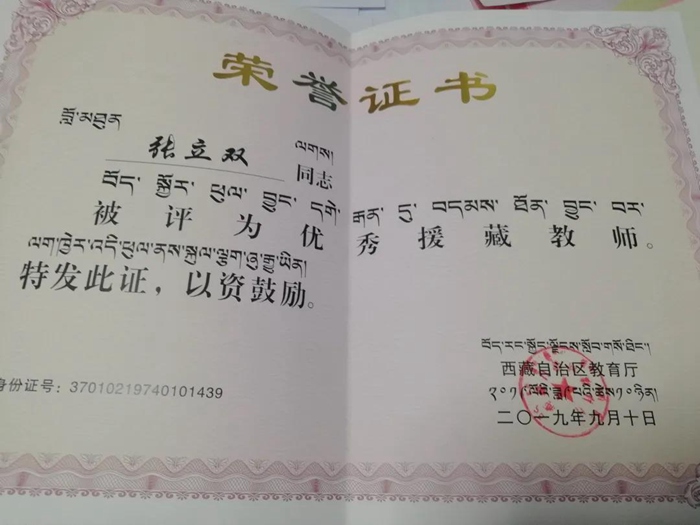 荣誉证书
བློ་མཐུན
张立双 ལགས།
同志
བོད་ སྐྱོར་ ཕུལ་ བྱུང་ དགེ་ རྒན་ དུ་ བདམས་ ཐོན་ བྱུང་ བར་
被评为优秀援藏教师。
ལག་ཁྱེར་འདི་ཕུལ་ནས་སྐུལ་ལྕག་ཞུ་རྒྱུ་ཡིན།
特发此证，以资鼓励。
བོད་རང་སྐྱོང་ལྗོངས་སློབ་གསོ་ཐིང་།
西藏自治区教育厅
身份证号：37010219740101439
二〇一九年九月十日